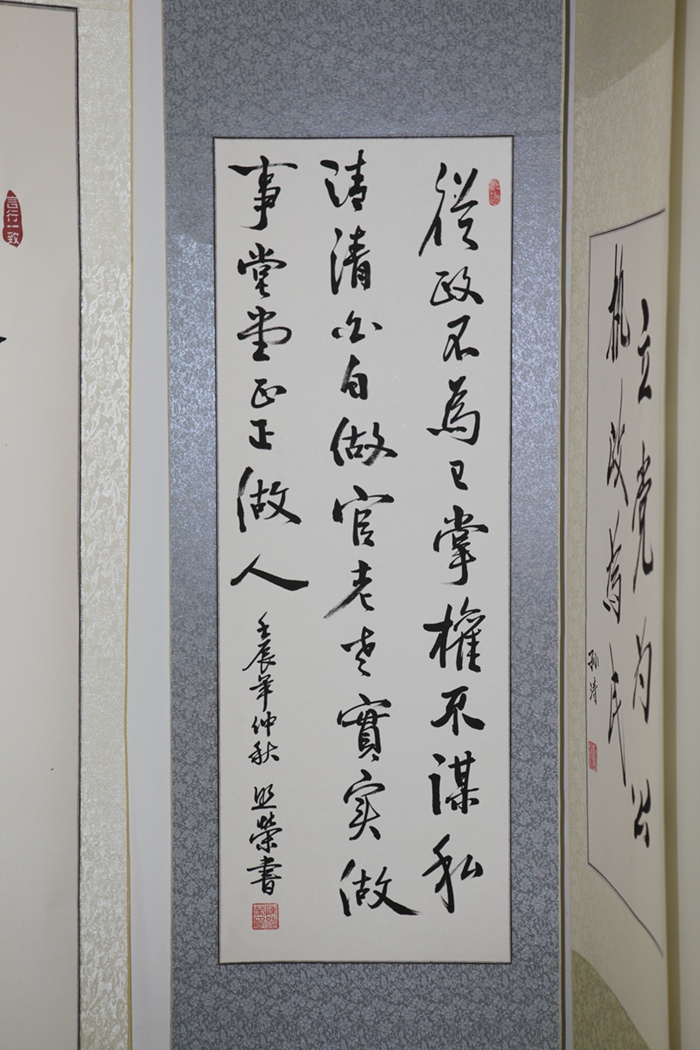 從政不為己掌權不謀私
清清白白做官老老實实做
事堂堂正正做人
壬辰年仲秋 照榮書
立党为公
执政為民
言行一致